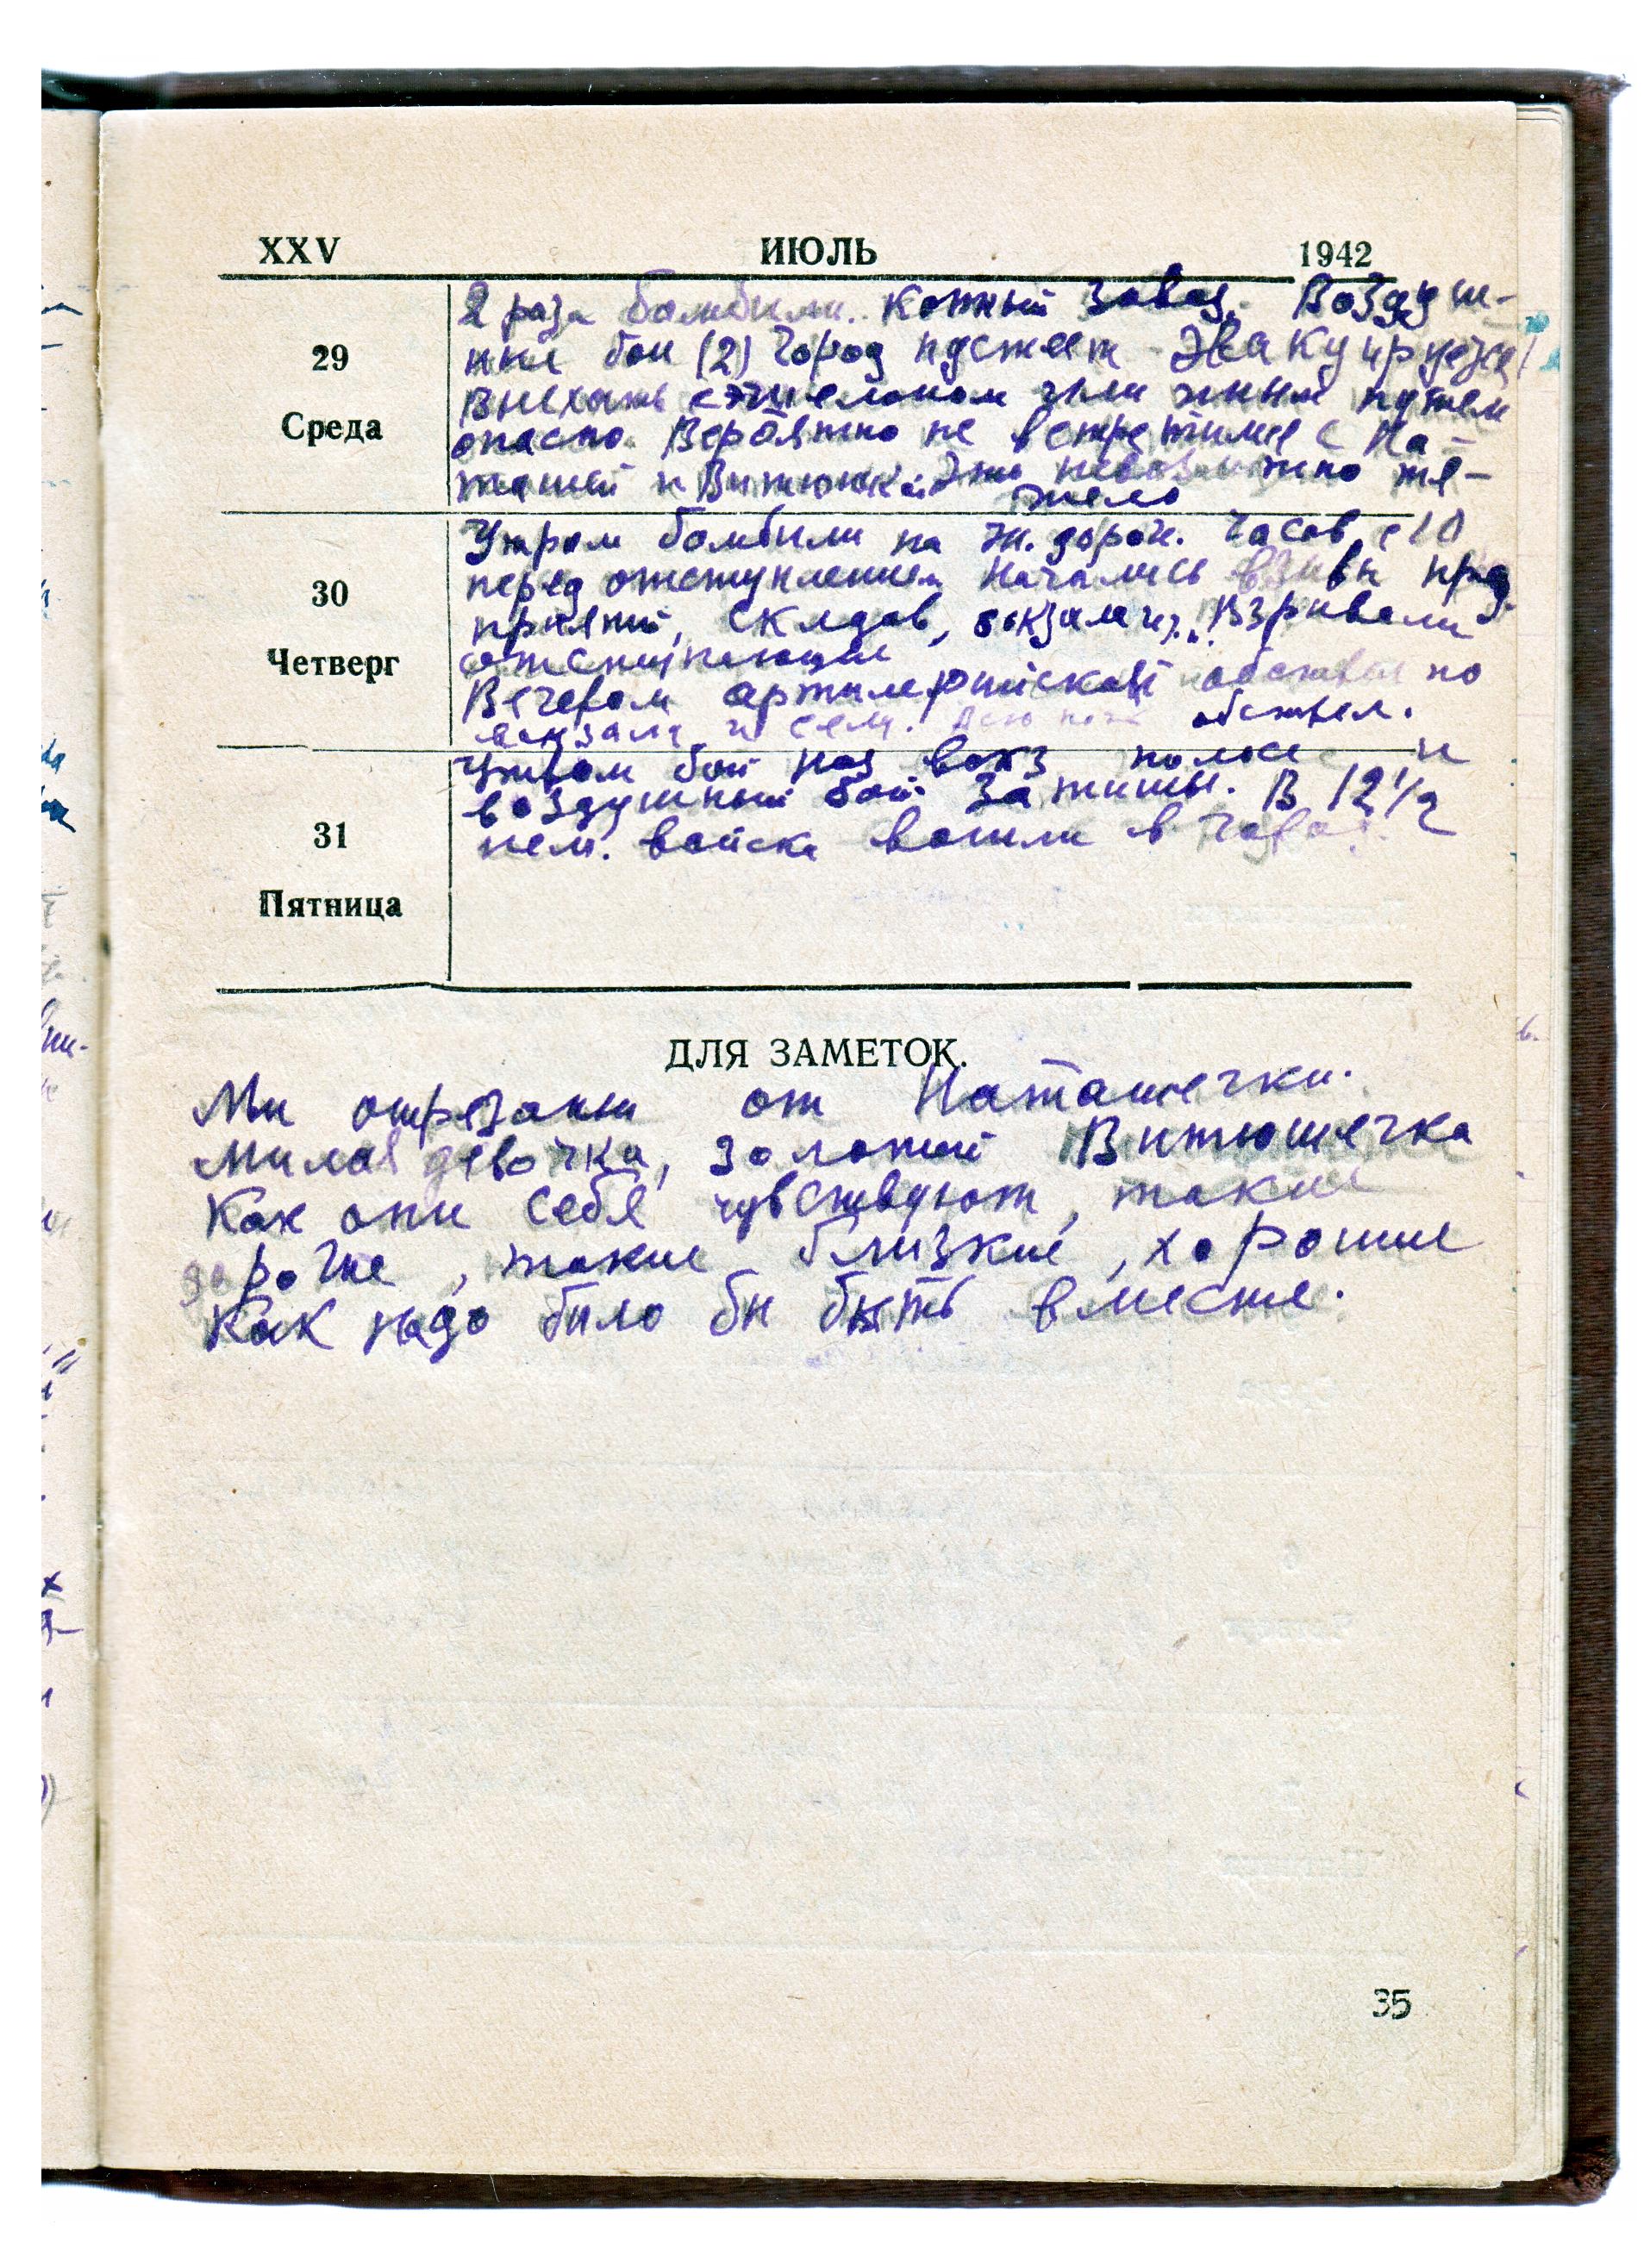 XXV ИЮЛЬ 1942
2 раза бомбили. Кожный завод. Воздуш-
29
ные бои (2) Город пустеет Эвакуируется
Выехать с эшелоном или иным путем
Среда
опасно. Вероятно не встретимся с На-
ташей и Витюшкой Это невозможно тя-
жело
Утром бомбили на ж. дорог. Часов с 10
перед отступлением начались взрывы пред-
30
приятий, складов, вокзала и т. Взрывали
Четверг
отступающие
Вечером артиллерийский обстрел по
вокзалу и сем. Всю ночь обстрел.
Утром бой над вокз и
воздушный бой Затишье. В 12 1/2
31
нем. войска вошли в город.
Пятница
ДЛЯ ЗАМЕТОК.
Мы отрезаны от Наташечки.
Милая девочка, золотой Витюшечка
Как они себя чувствуют, такие
дорогие, такие близкие, хорошие
Как надо было бы быть вместе.
35